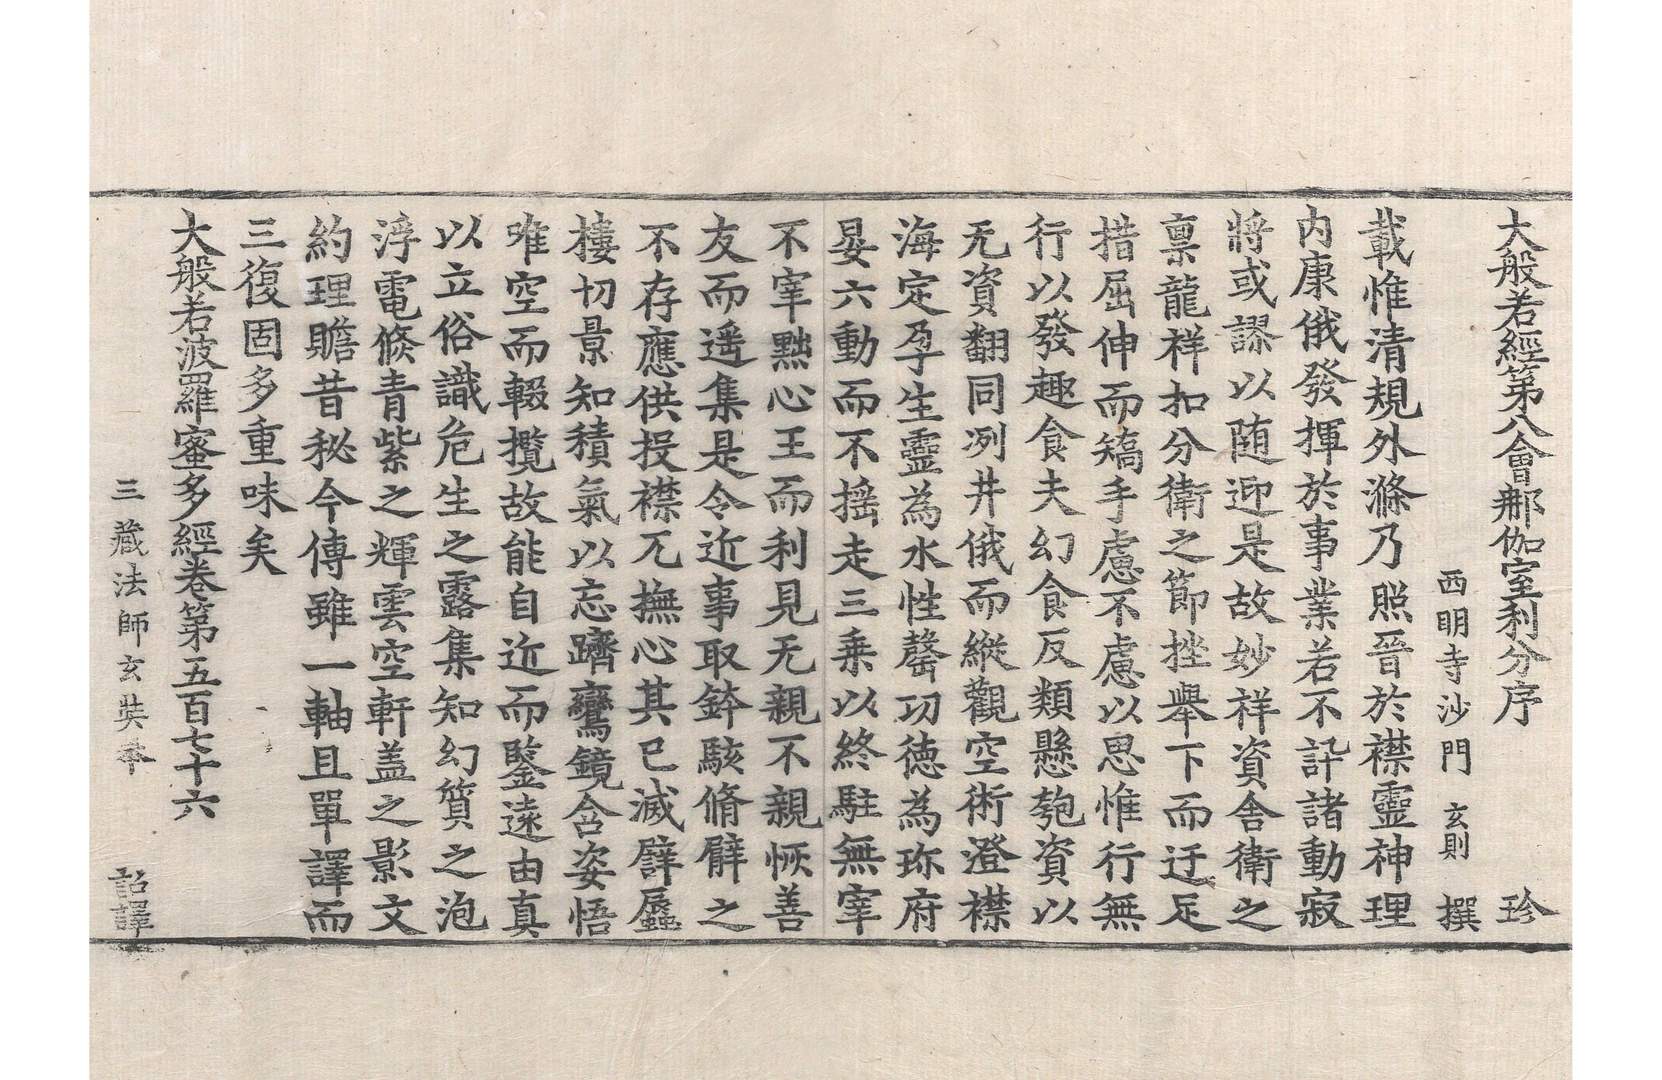 大般若經第八會那伽室利分序 珍
西明寺沙門 玄則 撰
載惟清規外滌乃照晉於襟靈神理
内康俄發揮於事業若不訐諸動寂
將或謬以随迎是故妙祥資舍衛之
禀龍祥扣分衛之節挫舉下而迂足
措屈伸而矯手慮不慮以思惟行無
行以發趣食夫幻食反類懸匏資以
无資翻同冽井俄而縱觀空術澄襟
海定孕生靈為水性罄㓛徳為珎府
晏六動而不揺走三乗以終駐無宰
不宰黜心王而利見无親不親恢善
友而遥集是令近事取鉢駭脩臂之
不存應供投襟㤀撫心其已滅譬蜃
樓切景知積氣以忘躋鸞鏡含姿悟
唯空而輟攬故能自近而鑒遠由真
以立俗識危生之露集知幻質之泡
浮電倐青紫之輝雲空軒盖之影文
約理贍昔秘今傳雖一軸且單譯而
三復固多重味矣
大般若波羅蜜多經卷第五百七十六
三藏法師玄奘奉 詔譯